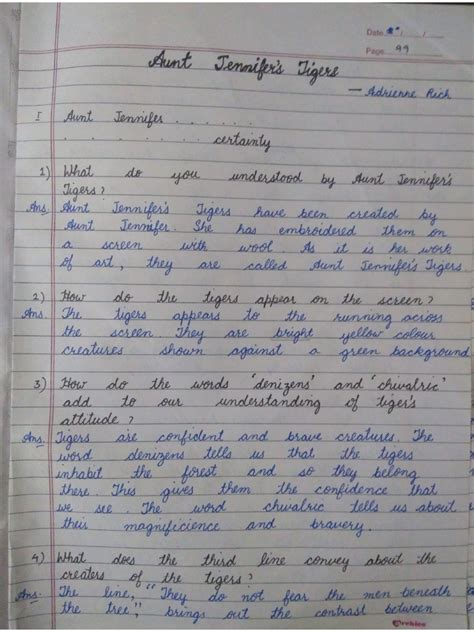 Date / /
Page 99
Aunt Jennifer's Tigers
— Adrienne Rich
I Aunt Jennifer . . . . . .
. . . . . . . . . . certainty
1) What do you understood by Aunt Jennifer's
Tigers ?
Ans. Aunt Jennifer's Tigers have been created by
Aunt Jennifer. She has embroidered them on
a screen with wool. As it is her work
of art, they are called Aunt Jennifer's Tigers.
2) How do the tigers appear on the screen ?
Ans. The tigers appears to the running across
the screen. They are bright yellow colour
creatures shown against a green background
3) How do the words 'denizens' and 'chivalric'
add to our understanding of tiger's
attitude ?
Ans. Tigers are confident and brave creatures. The
word denizens tells us that the tigers
inhabit the forest and so they belong
there. This gives them the confidence that
we see. The word chivalric tells us about
their magnificience and bravery.
4) What does the third line convey about the
creaters of the tigers ?
Ans: The line, "They do not fear the men beneath
the tree," brings out the contrast between
Archies